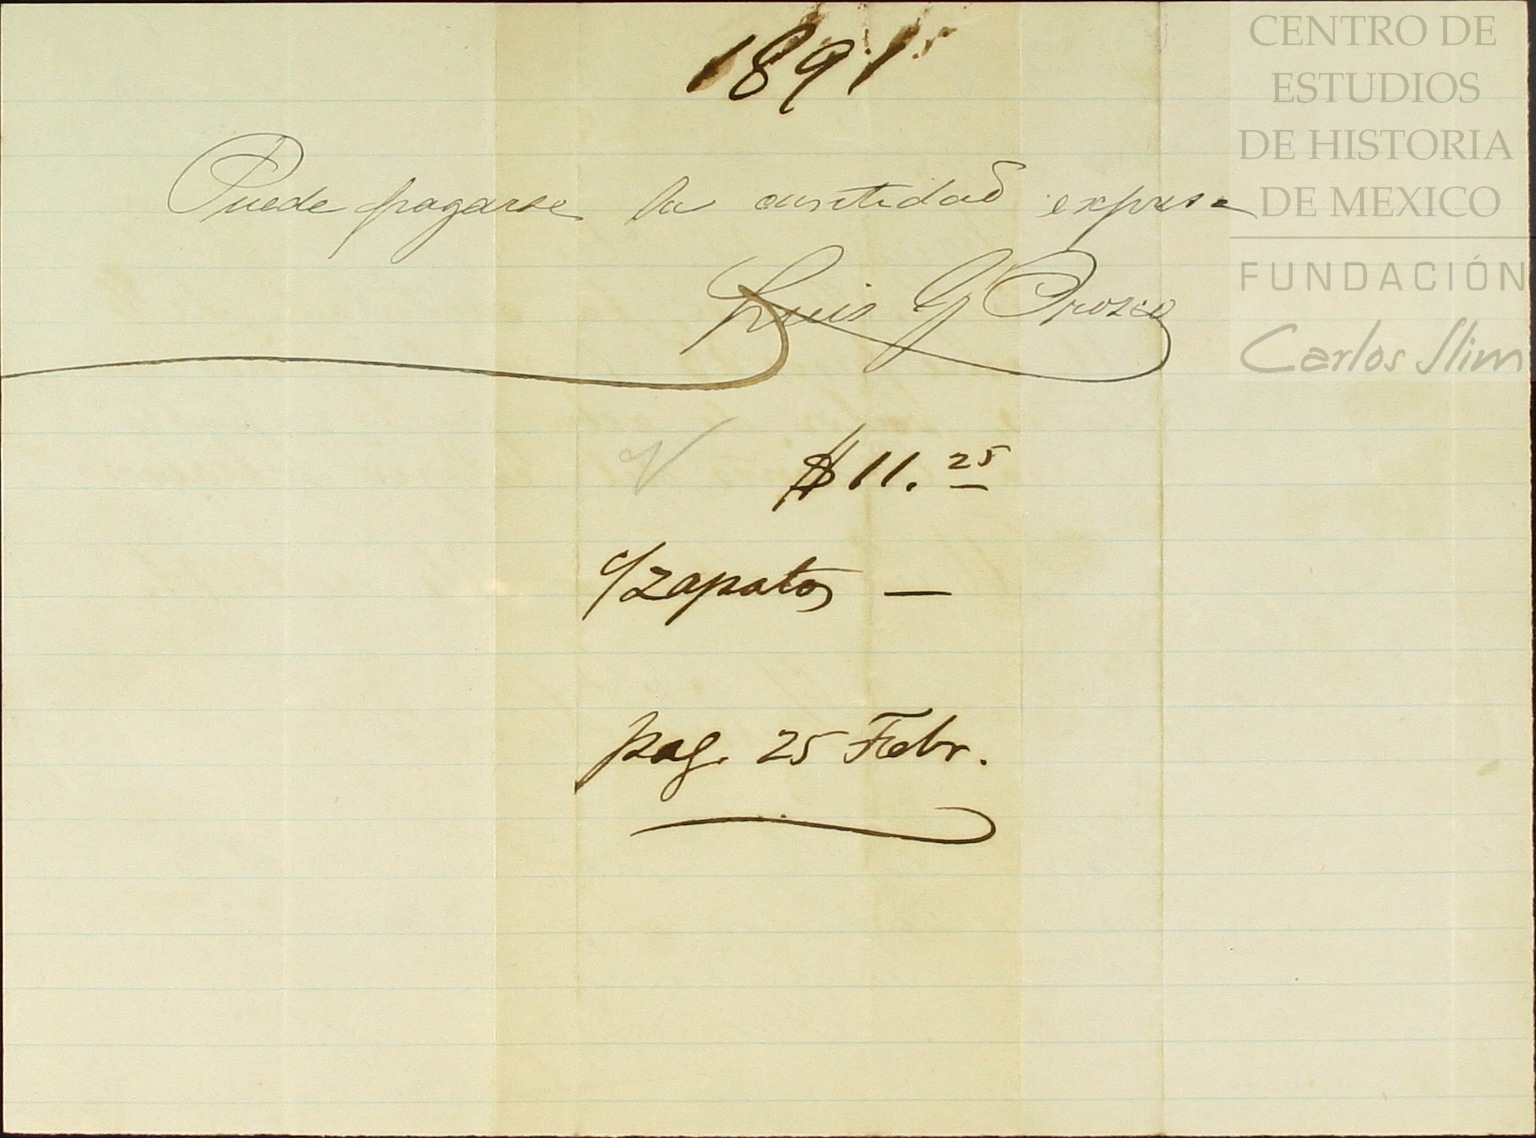 1891
CENTRO DE
ESTUDIOS
DE HISTORIA
DE MEXICO
FUNDACIÓN
Carlos Slim
Puede pagarse la cantidad expresa
Luis G Orozco
$11.25
c/zapatos —
pag. 25 Febr.